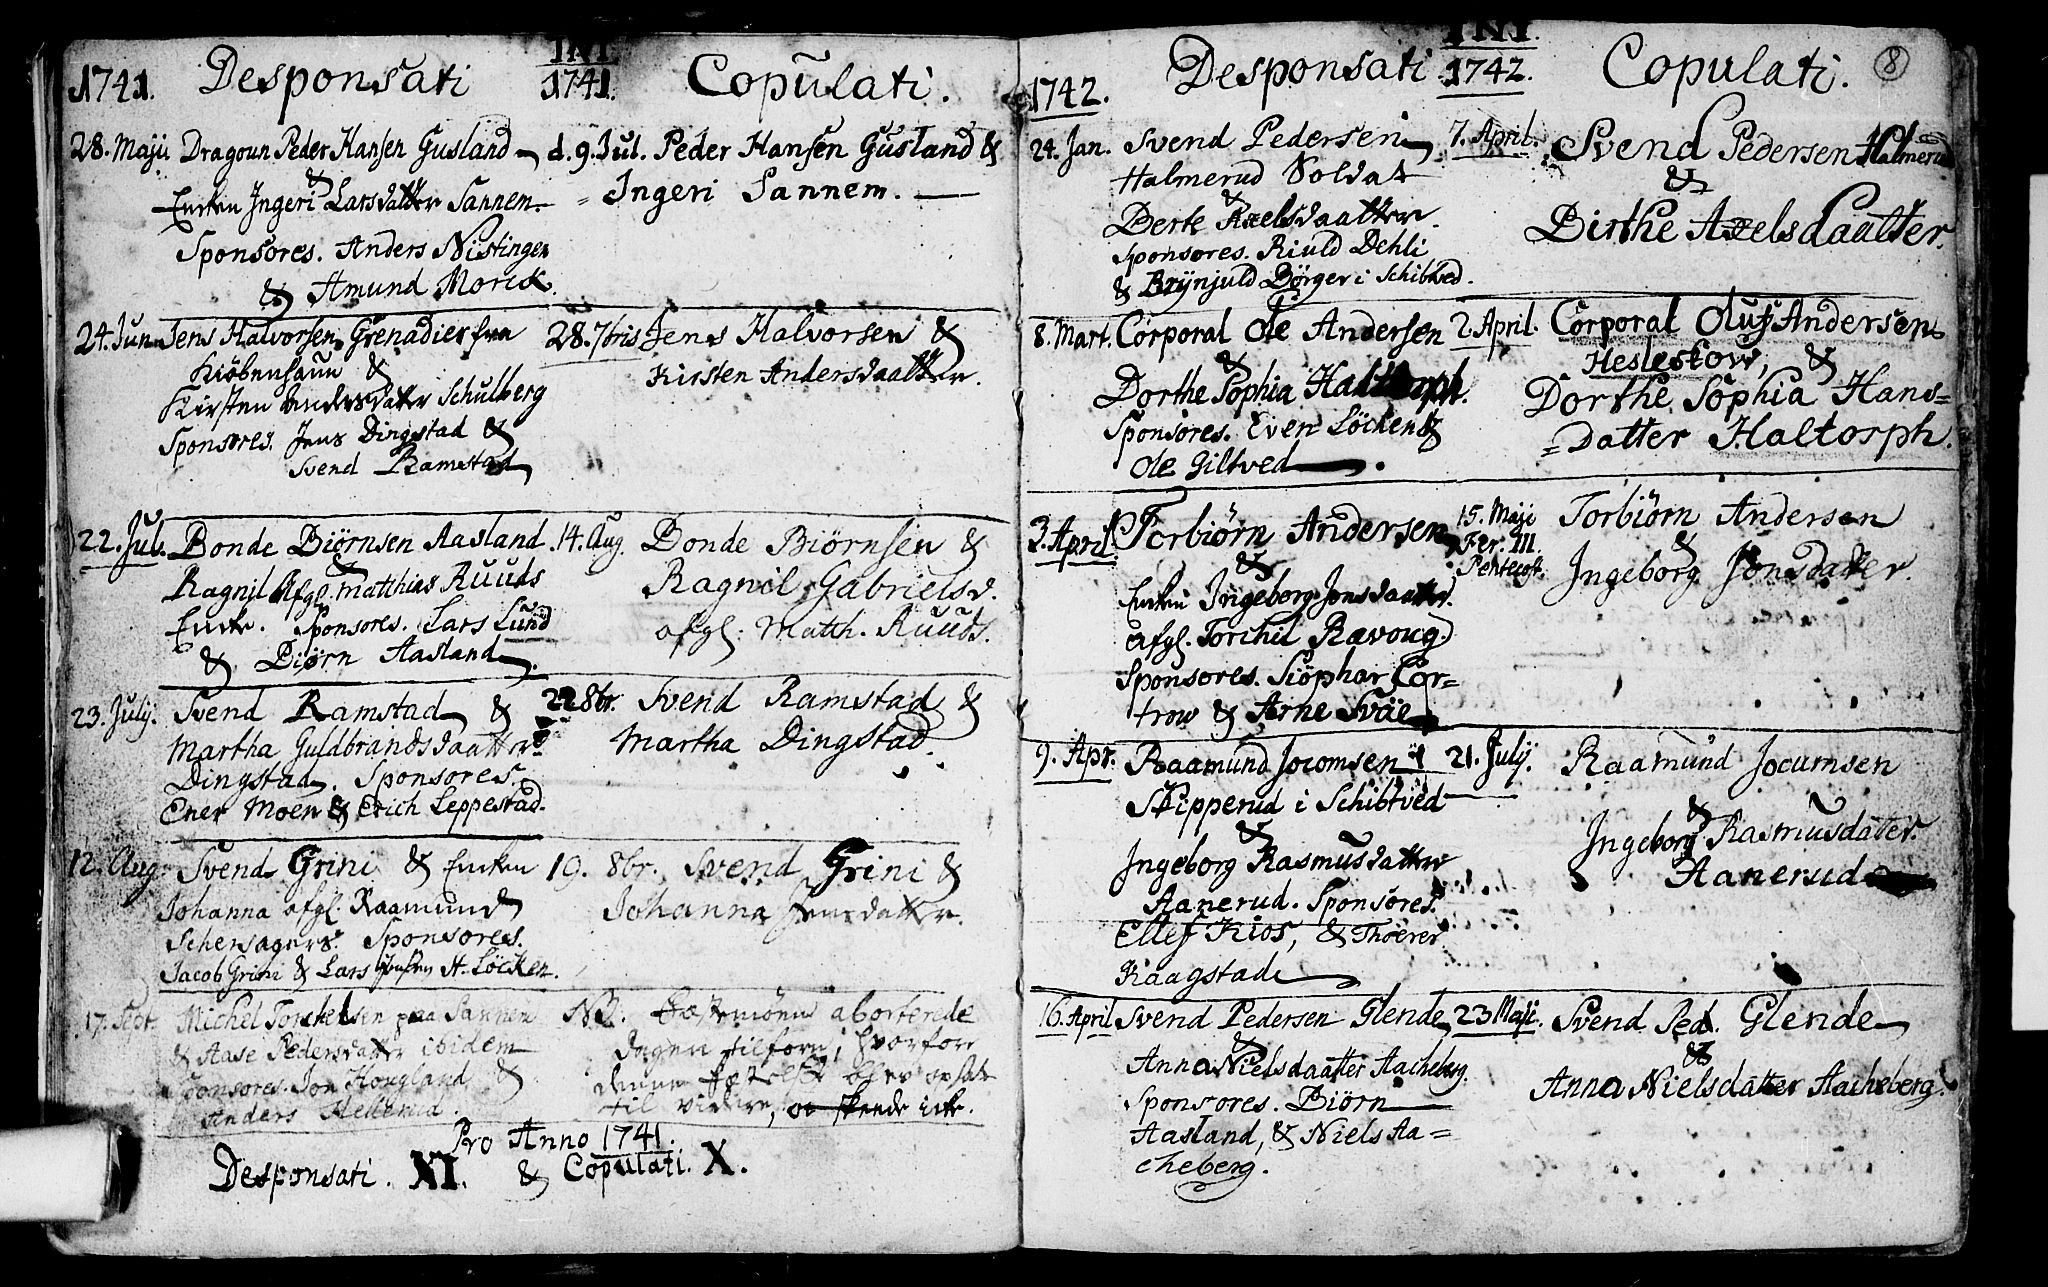 INI
1741. Desponsati 1741. Copulati.
28. Maji Dragoun Peder Hansen Gusland
&
Encken Ingeri Larsdatter Sannem.
Sponsores. Anders Nistingen
& Amund Morck.
d. 9. Jul. Peder Hansen Gusland &
Ingeri Sannem.
24. Jun. Jens Halvorsen Grenadier fra
Kiöbenhaun &
Kirsten Andersdatter Schulberg
Sponsores. Jens Dingstad &
Svend Ramstad
28. 7bris Jens Halvorsen &
Kirsten Andersdaatter.
22. Jul. Bonde Biörnsen Aasland
&
Ragnil Afgl. Matthias Ruuds
Encke. Sponsores. Lars Lund
& Biörn Aasland.
14. Aug. Bonde Biörnsen &
Ragnil Gabrielsd.
afgl. Matth. Ruuds.
23. July. Svend Ramstad &
Martha Guldbrandsdaatter
Dingstad. Sponsores.
Ener Moen & Erich Leppestad.
22 8br. Svend Ramstad &
Martha Dingstad.
12. Aug. Svend Grini & Encken
Johanna afgl. Raamund
Schersagers. Sponsores.
Jacob Grini & Lars H. Löcken.
19. 8br. Svend Grini &
Johanna Jensdatter.
17. Sept. Michel Torchelsen paa Sannem
& Aase Pedersdatter ibidem
Sponsores. Jon Hougland &
Anders Hellerud.
NB. Fæstemöen aborterede
dagen tilforn, hvorfore
denne fæste blev opsat
til videre, og skeede icke.
Pro Anno 1741.
Desponsati. XI. & Copulati. X.
INI.
8
1742. Desponsati 1742. Copulati.
24. Jan. Svend Pedersen
Halmerud Soldat
&
Berte Axelsdaatter.
Sponsores. Riuld Dehli
& Brynjuld Börger i Schibtved.
7. April. Svend Pedersen Halmerud
&
Birthe Axelsdaatter.
8. Mart. Corporal Ole Andersen
&
Dorthe Sophia Haltorph.
Sponsores. Even Löcken &
Ole Giltved.
2. April. Corporal Oluf Andersen
Heslestow, &
Dorthe Sophia Hans=
=Datter Haltorph.
3. April Torbiörn Andersen
&
Encken Ingeborg Jonsdaatter.
afgl. Torchil Ravoug.
Sponsores. Siöphar Cor=
trow & Arne Svae
15. Maji
Fer. III.
Pentecost.
Torbiörn Andersen
&
Ingeborg Jonsdatter.
9. Apr. Raamund Jocomsen
Skipperud i Schibtved
&
Ingeborg Rasmusdatter
Aanerud. Sponsores.
Ellef Kios, & Thoerer
Kaagstad
21. July. Raamund Jocumsen
&
Ingeborg Rasmusdater.
Aanerud
16. April Svend Pedersen Glende
&
Anna Nielsdaatter Aacheberg.
Sponsores. Biörn
Aasland, & Niels Aa=
cheberg.
23 Maji. Svend Ped. Glende
&
Anna Nielsdatter Aacheberg.